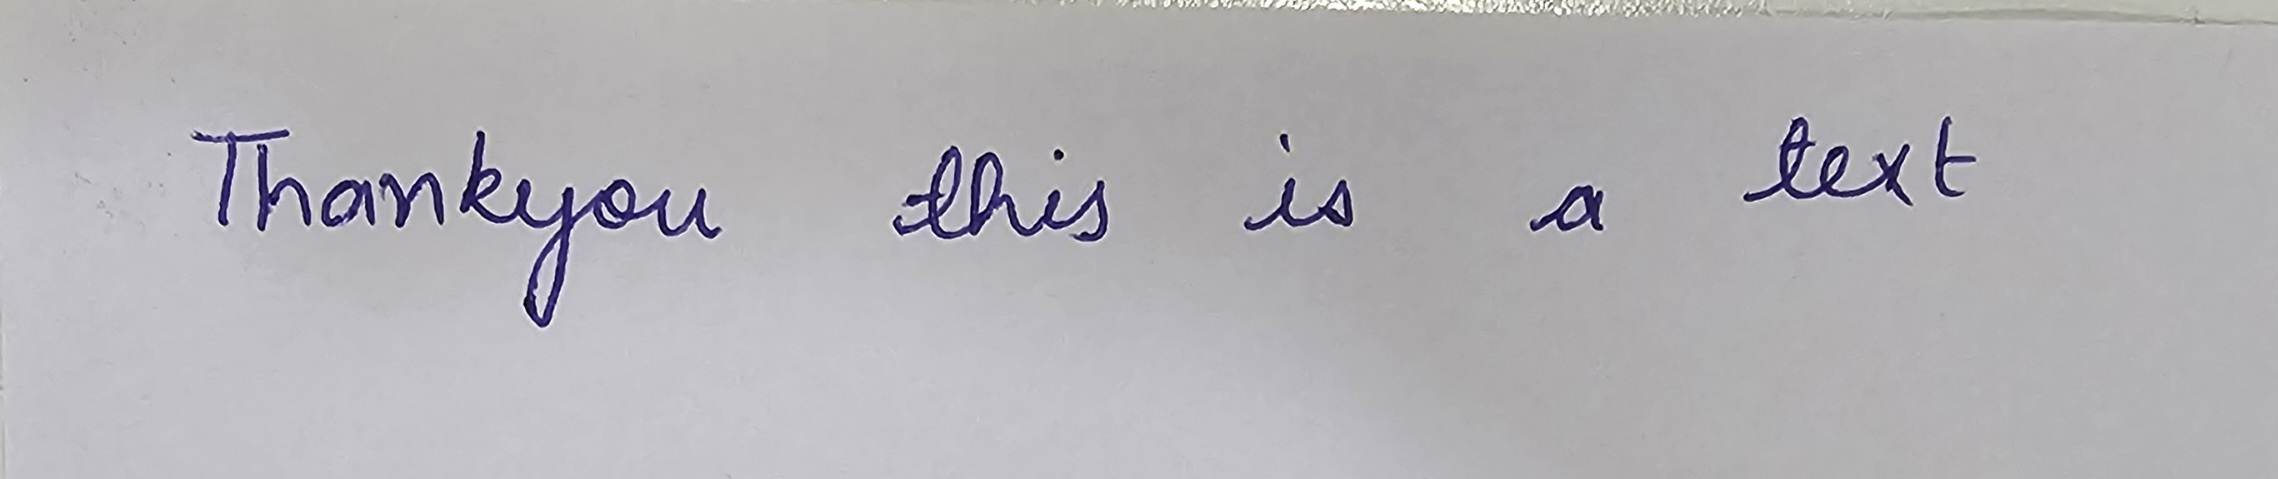 Thankyou this is a text